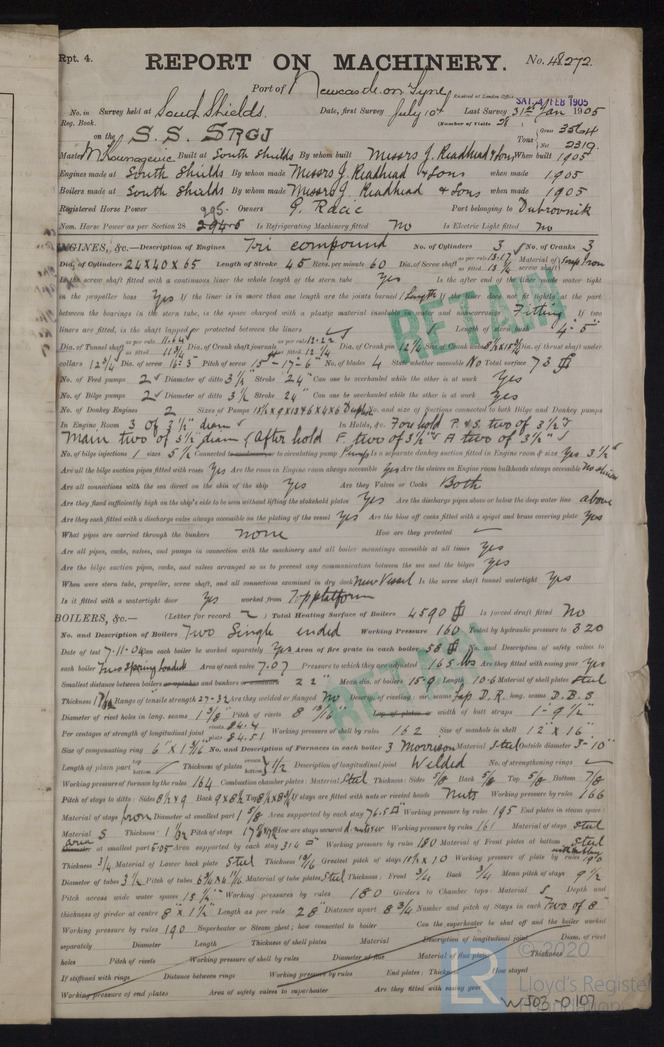 Rpt. 4. REPORT ON MACHINERY. No. 48272.
Port of Newcastle on Tyne Received at London Office
SAT. 4 FEB 1905
No. in Survey held at South Shields. Date, first Survey July 10th Last Survey, 31st Jan 1905
Reg. Book. (Number of Visits 28)
on the S.S. SRGJ Tons Gross 3564 Net 2319.
Master Built at South Shields By whom built Messrs J. Readhead & Sons When built 1905
Engines made at South Shields By whom made Messrs J. Readhead & Sons when made 1905
Boilers made at South Shields By whom made Messrs J. Readhead & Sons when made 1905
Registered Horse Power Owners G. Racic Port belonging to Dubrovnik
Nom. Horse Power as per Section 28 295 Is Refrigerating Machinery fitted No Is Electric Light fitted no
ENGINES, &c.—Description of Engines Tri compound No. of Cylinders 3 No. of Cranks 3
Dia. of Cylinders 24 X 40 X 65 Length of Stroke 45 Revs. per minute 60 Dia. of Screw shaft as per rule 13.17 as fitted 13 1/4 Material of screw shaft Iron
Is the screw shaft fitted with a continuous liner the whole length of the stern tube Yes Is the after end of the liner made water tight
in the propeller boss Yes If the liner is in more than one length are the joints burned 1 length If the liner does not fit tightly at the part
between the bearings in the stern tube, is the space charged with a plastic material insoluble in water and non-corrosive Fitting If two
liners are fitted, is the shaft lapped or protected between the liners Length of stern bush 4'-5"
Dia. of Tunnel shaft as per rule 11.64 as fitted 11 3/4 Dia. of Crank shaft journals as per rule 12.22 as fitted 12 1/4 Dia. of Crank pin 12 1/4 Dia. of thrust shaft under
collars 12 3/4 Dia. of screw 16-3 Pitch of screw 15-17-6 No. of blades 4 State whether moveable No Total surface 73
No. of Feed pumps 2 Diameter of ditto 3 1/2 Stroke 24" Can one be overhauled while the other is at work Yes
No. of Bilge pumps 2 Diameter of ditto 3 1/2 Stroke 24" Can one be overhauled while the other is at work Yes
No. of Donkey Engines 2 Sizes of Pumps Duplex No. and size of Suctions connected to both Bilge and Donkey pumps
In Engine Room 3 of 3 1/2" diam In Holds, &c. Fore hold P. & S. two of 3 1/2"
Main two of 3 1/2" diam After hold F. two of 3 1/2" A two of 3 1/2"
No. of bilge injections 1 sizes 5 1/2 Connected to circulating pump Pump Is a separate donkey suction fitted in Engine room & size Yes 3 1/2"
Are all the bilge suction pipes fitted with roses Yes Are the roses in Engine room always accessible Yes Are the sluices on Engine room bulkheads always accessible No sluices
Are all connections with the sea direct on the skin of the ship Yes Are they Valves or Cocks Both
Are they fixed sufficiently high on the ship's side to be seen without lifting the stokehold plates Yes Are the discharge pipes above or below the deep water line above
Are they each fitted with a discharge valve always accessible on the plating of the vessel Yes Are the blow off cocks fitted with a spigot and brass covering plate Yes
What pipes are carried through the bunkers none How are they protected
Are all pipes, cocks, valves, and pumps in connection with the machinery and all boiler mountings accessible at all times Yes
Are the bilge suction pipes, cocks, and valves arranged so as to prevent any communication between the sea and the bilges Yes
When were stern tube, propeller, screw shaft, and all connections examined in dry dock New Vessel Is the screw shaft tunnel watertight Yes
Is it fitted with a watertight door Yes worked from Top platform
BOILERS, &c.— (Letter for record ) Total Heating Surface of Boilers 4590 Is forced draft fitted No
No. and Description of Boilers Two Single ended Working Pressure 160 Tested by hydraulic pressure to 320
Date of test 7-11-04 Can each boiler be worked separately Yes Area of fire grate in each boiler 58 No. and Description of safety valves to
each boiler Two Spring loaded Area of each valve 7.07 Pressure to which they are adjusted 165 lbs Are they fitted with easing gear Yes
Smallest distance between boilers or uptakes and bunkers 22" Mean dia. of boilers 15-9 Length 10-6 Material of shell plates Steel
Thickness Range of tensile strength 27-32 Are they welded or flanged No Descrip. of riveting: cir. seams Lap D.R. long. seams D.B.S
Diameter of rivet holes in long. seams 1 3/8" Pitch of rivets 8 13/16" Lap of plates or width of butt straps 1-9 1/2"
Per centages of strength of longitudinal joint rivets 84.4 plate 84.51 Working pressure of shell by rules 162 Size of manhole in shell 12" X 16"
Size of compensating ring No. and Description of Furnaces in each boiler 3 Morrison Material Steel Outside diameter 3-10"
Length of plain part top bottom Thickness of plates crown bottom 1/2 Description of longitudinal joint Welded No. of strengthening rings
Working pressure of furnace by the rules 164 Combustion chamber plates: Material Steel Thickness: Sides 5/8 Back 5/8 Top 5/8 Bottom 7/8
Pitch of stays to ditto: Sides 8 1/2 X 9 Back 9 X 8 1/2 Top If stays are fitted with nuts or riveted heads Nuts Working pressure by rules 166
Material of stays Iron Diameter at smallest part 1 5/8 Area supported by each stay 76.5 Working pressure by rules 195 End plates in steam space:
Material S Thickness 1 1/32 Pitch of stays How are stays secured Working pressure by rules 161 Material of stays Steel
Area at smallest part 5.05 Area supported by each stay 314 Working pressure by rules 180 Material of Front plates at bottom Steel
Thickness 3/4 Material of Lower back plate Steel Thickness 13/16 Greatest pitch of stays Working pressure of plate by rules 190
Diameter of tubes 3 1/2 Pitch of tubes Material of tube plates Steel Thickness: Front 3/4 Back 3/4 Mean pitch of stays 9 1/2
Pitch across wide water spaces 13 1/4" Working pressures by rules 180 Girders to Chamber tops: Material S Depth and
thickness of girder at centre 8" X 1 1/2" Length as per rule 28" Distance apart 8 3/4 Number and pitch of Stays in each Two of 8"
Working pressure by rules 190 Superheater or Steam chest; how connected to boiler Can the superheater be shut off and the boiler worked
separately Diameter Length Thickness of shell plates Material Description of longitudinal joint Diam. of rivet
holes Pitch of rivets Working pressure of shell by rules Diameter of flue Material of flue plates Thickness
If stiffened with rings Distance between rings Working pressure by rules End plates: Thickness How stayed
Working pressure of end plates Area of safety valves to superheater Are they fitted with easing gear
RETAIN
RETAIN
© 2020
LR Lloyd's Register Foundation
W503-0107